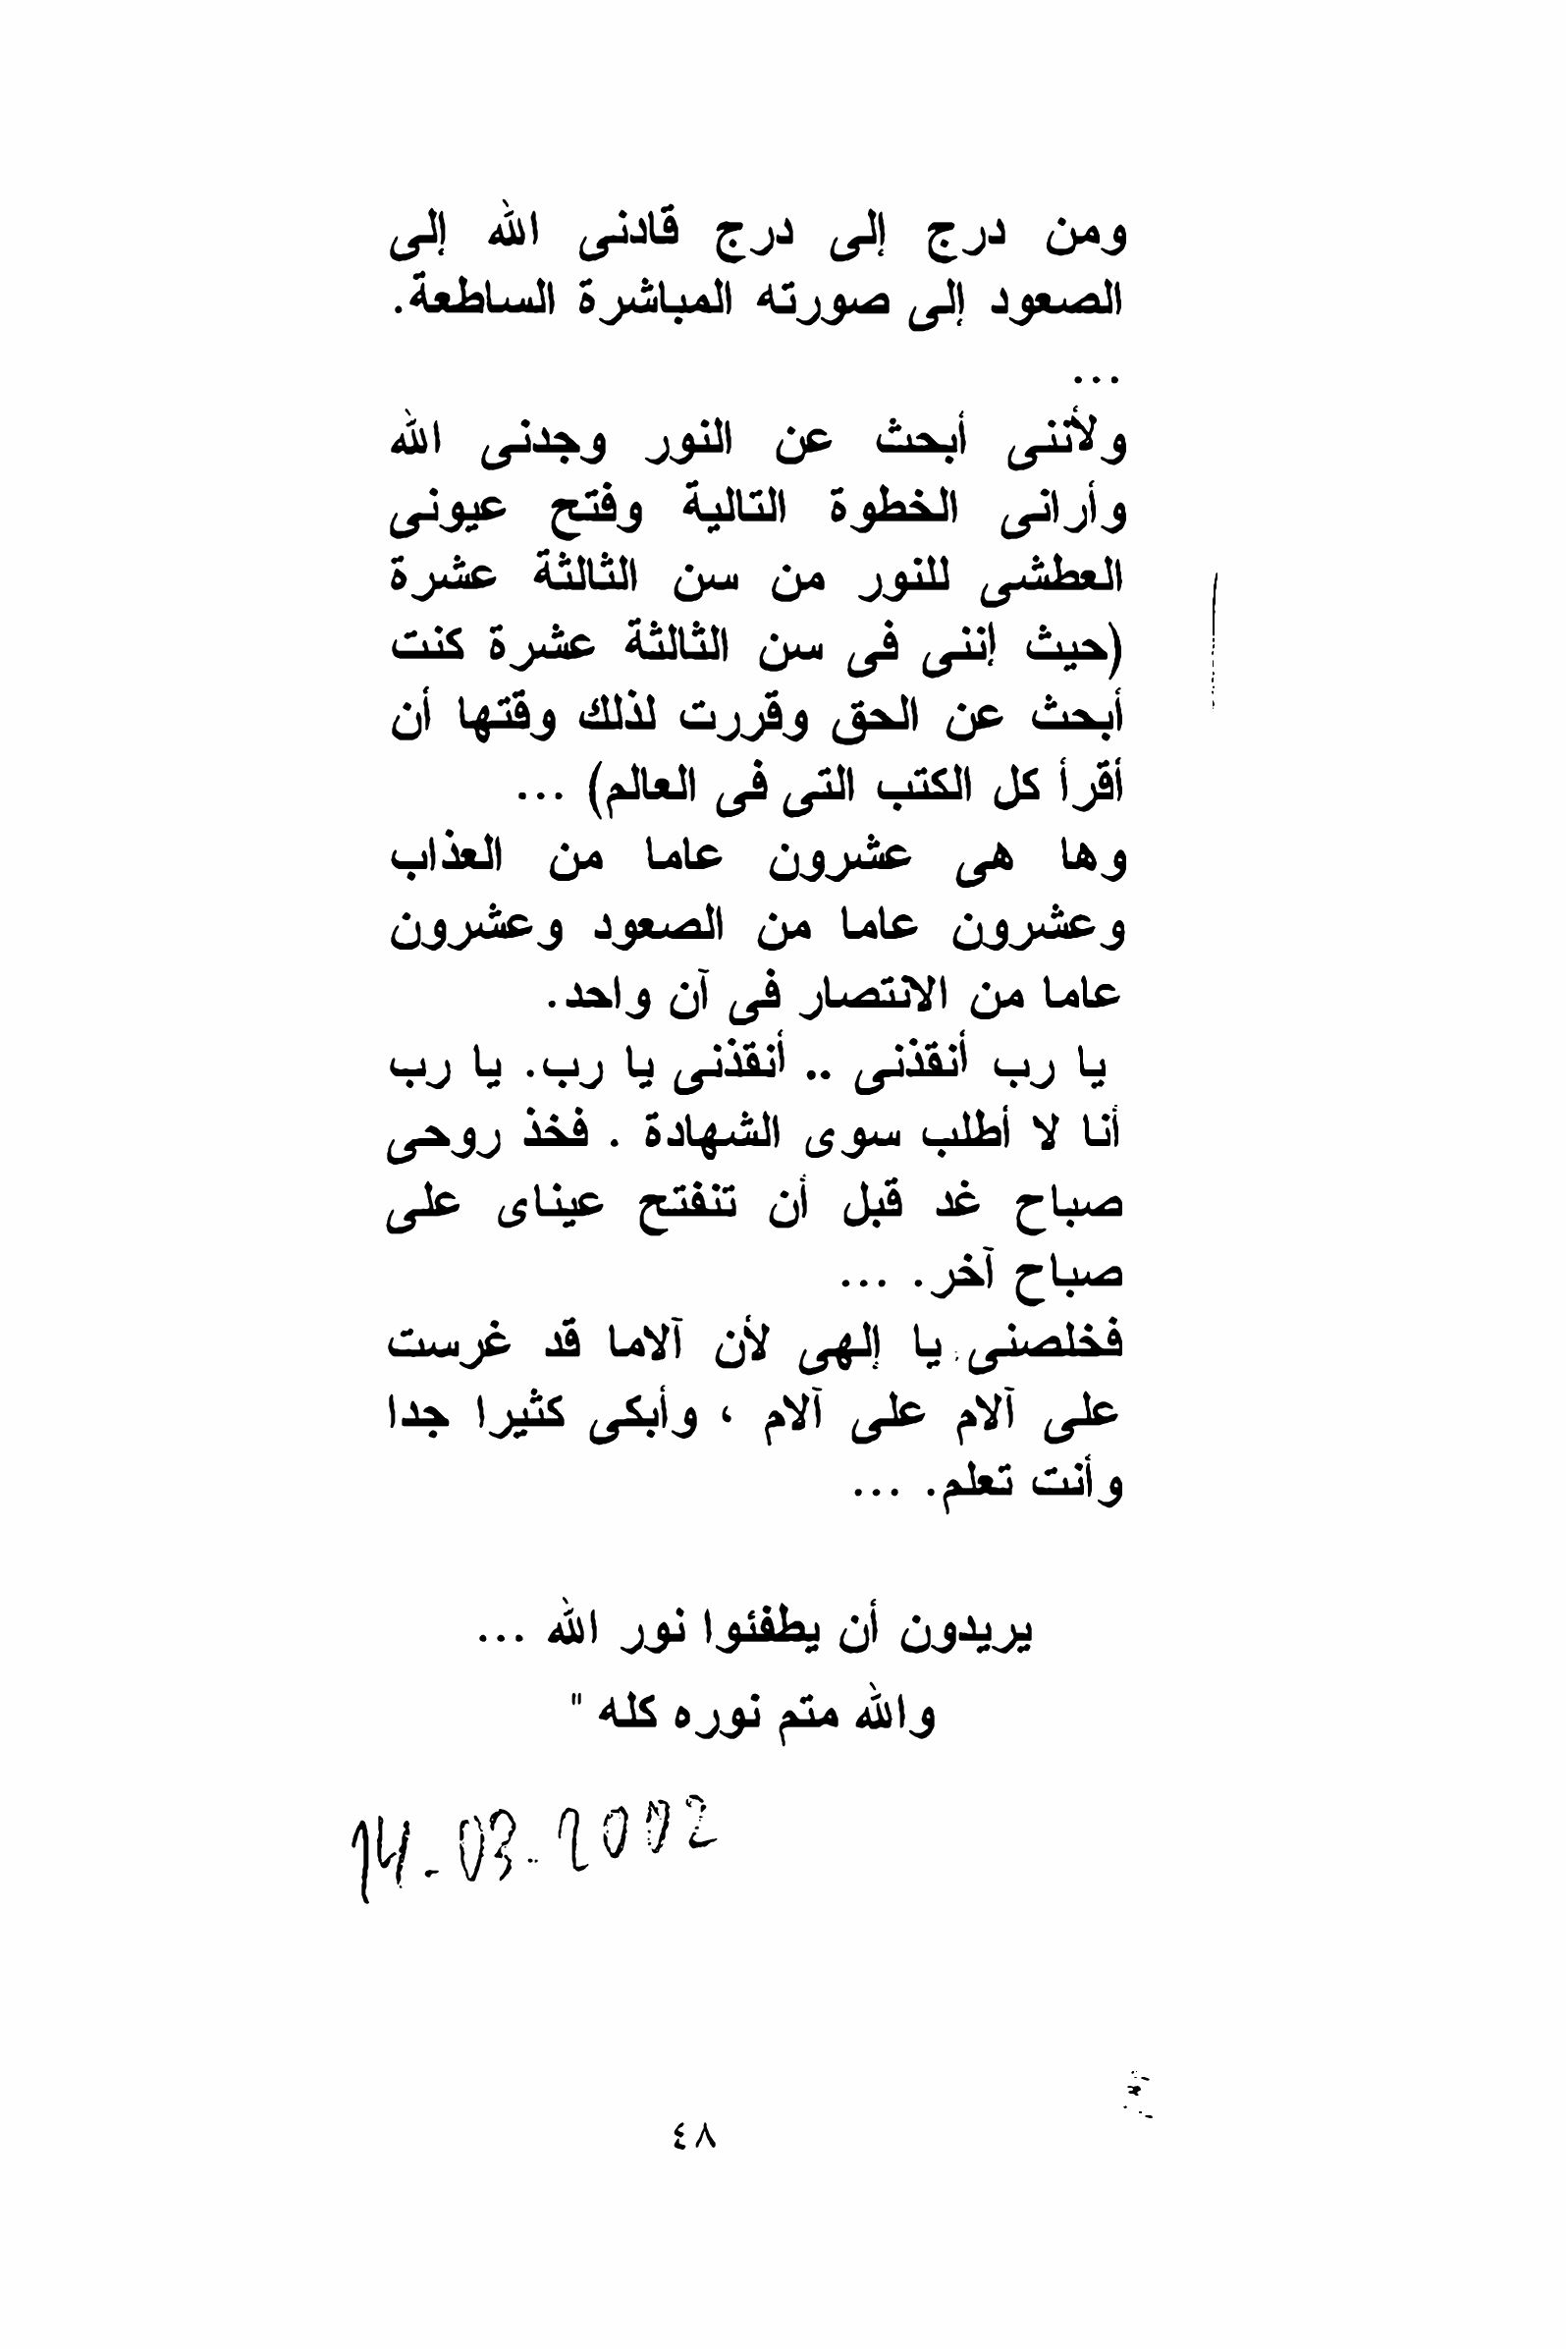 ومن درج إلى درج قادنى الله إلى
الصعود إلى صورته المباشرة الساطعة.
...
ولأننى أبحث عن النور وجدنى الله
وأرانى الخطوة التالية وفتح عيونى
العطشى للنور من سن الثالثة عشرة
(حيث إننى فى سن الثالثة عشرة كنت
أبحث عن الحق وقررت لذلك وقتها أن
أقرأ كل الكتب التى فى العالم) ...
وها هى عشرون عاما من العذاب
وعشرون عاما من الصعود وعشرون
عاما من الانتصار فى آن واحد.
يا رب أنقذنى .. أنقذنى يا رب. يا رب
أنا لا أطلب سوى الشهادة . فخذ روحى
صباح غد قبل أن تنفتح عيناى على
صباح آخر. ...
فخلصنى يا إلهى لأن آلاما قد غرست
على آلام على آلام ، وأبكى كثيرا جدا
وأنت تعلم. ...
يريدون أن يطفئوا نور الله ...
والله متم نوره كله "
14-03-2002
٤٨